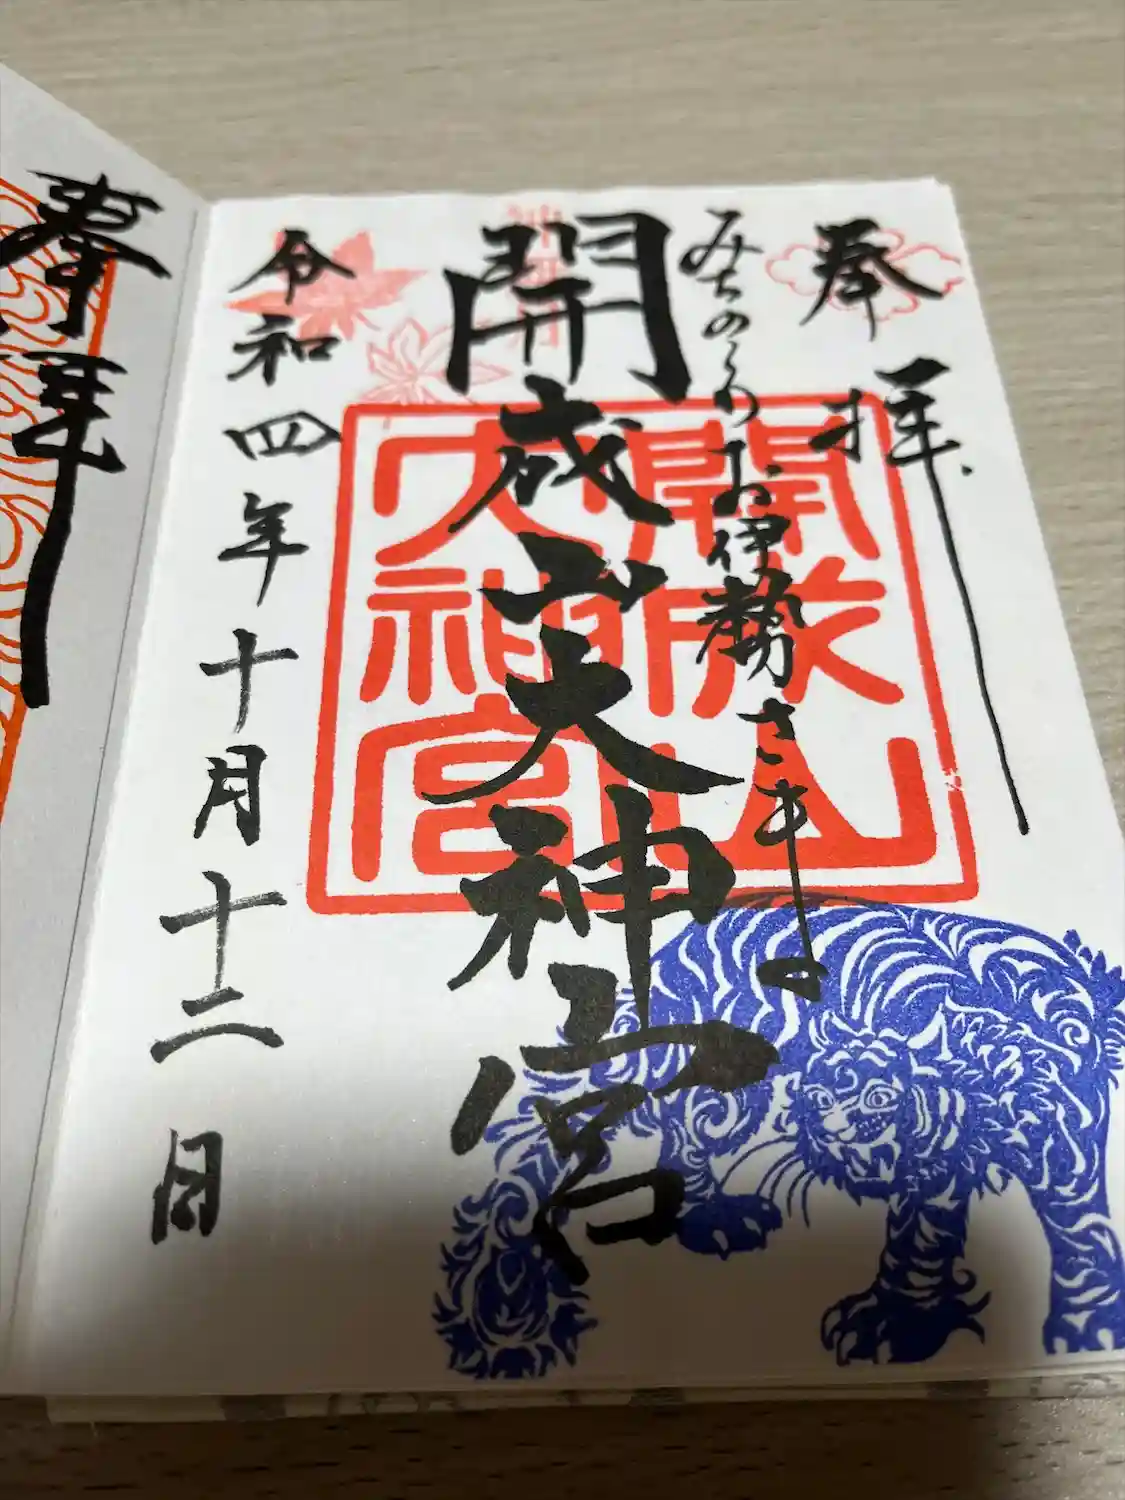 奉拝
みちのくのお伊勢さま。
開成山大神宮
神無月
令和四年十月十二日
開成山
大神宮
奉拝